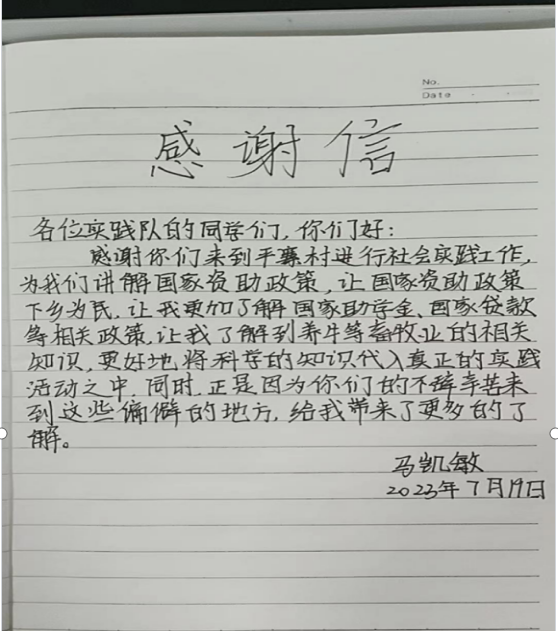 No.
Date
感谢信
各位实践队的同学们,你们好:
感谢你们来到平寨村进行社会实践工作,
为我们讲解国家资助政策,让国家资助政策
下乡为民,让我更加了解国家助学金、国家贷款
等相关政策,让我了解到养牛等畜牧业的相关
知识,更好地将科学的知识代入真正的实践
活动之中,同时,正是因为你们的不辞辛苦来
到这些偏僻的地方,给我带来了更多的了
解。
马凯敏
2023年7月19日